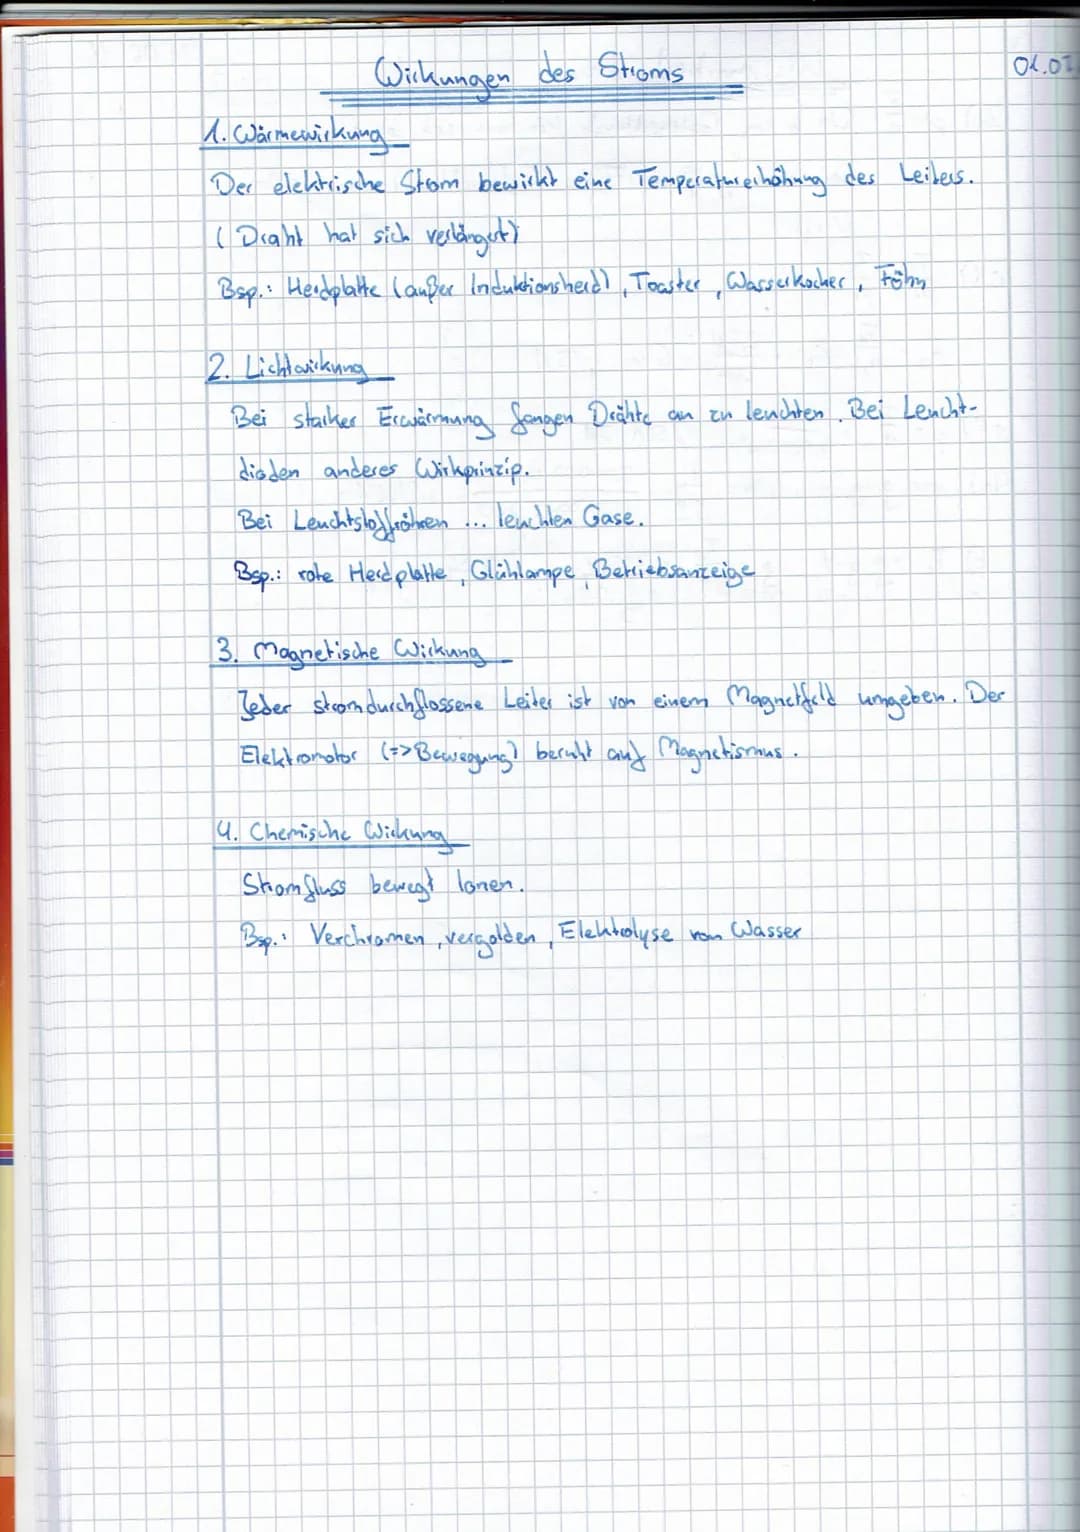 Wirkungen des Stroms
1. Wärmewirkung
Der elektrische Strom bewirkt eine Temperaturerhöhung des Leiters.
(Draht hat sich verlängert)
Bsp.: Herdplatte (außer Induktionsherd), Toaster, Wasserkocher, Föhn
2. Lichtwirkung
Bei starker Erwärmung fangen Drähte an zu leuchten. Bei Leucht-
dioden anderes Wirkprinzip.
Bei Leuchtstoffröhren ... leuchten Gase.
Bsp.: rote Herdplatte, Glühlampe, Betriebsanzeige
3. Magnetische Wirkung
Jeder stromdurchflossene Leiter ist von einem Magnetfeld umgeben. Der
Elektromotor (=> Bewegung) beruht auf Magnetismus.
4. Chemische Wirkung
Stromfluss bewegt Ionen.
Bsp.: Verchromen, vergolden, Elektrolyse von Wasser